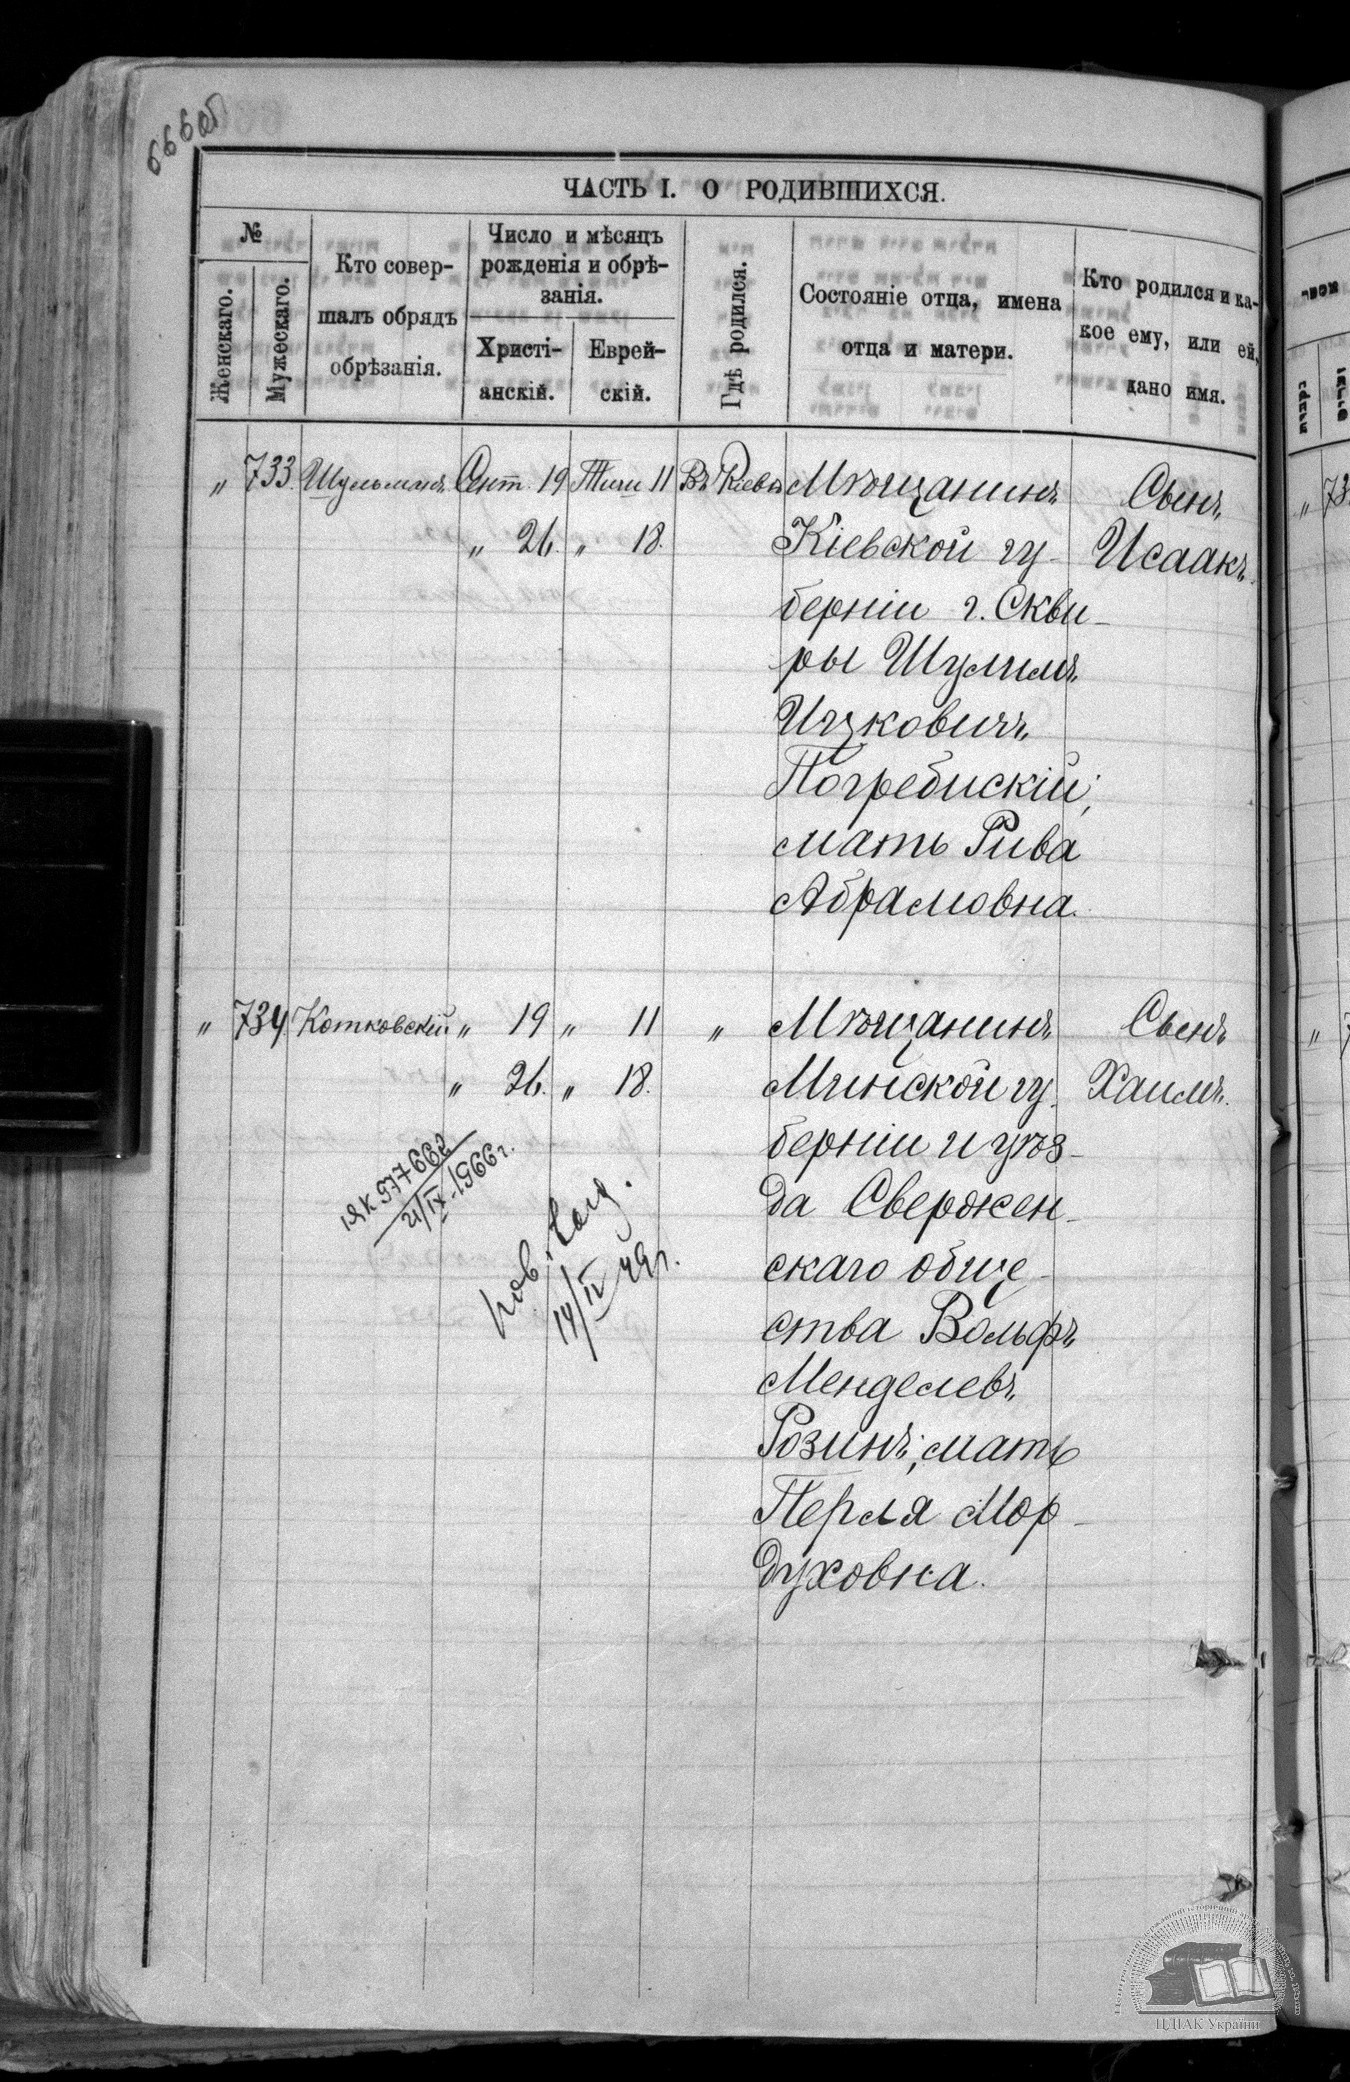 666об
ЧАСТЬ I. О РОДИВШИХСЯ.
№
Женскаго.
Мужескаго.
Кто совер-
шалъ обрядъ
обрѣзанія.
Число и мѣсяцъ
рожденія и обрѣ-
занія.
Христі-
анскій.
Еврей-
скій.
Гдѣ родился.
Состояніе отца, имена
отца и матери.
Кто родился и ка-
кое ему, или ей,
дано имя.
„ 733. Шульманъ Сент. 19 Тиш 11 Въ Кіевѣ Мѣщанинъ Сынъ
„ 26. „ 18. Кіевской гу- Исаакъ.
берніи г. Скви-
ры Шулимъ
Ицковичъ
Погребискій;
мать Рива
Абрамовна.
„ 734 Котковскій „ 19 „ 11 „ Мѣщанинъ Сынъ
„ 26. „ 18. Минской гу- Хаимъ.
берніи и уѣз-
да Свержен-
скаго обще-
ства Вольфъ
Менделевъ
Розинъ; мать
Перля Мор-
духовна.
ІЯК 977662
21/IX-1966г.
пов.
14/IV 49г.
ЦДІАК України